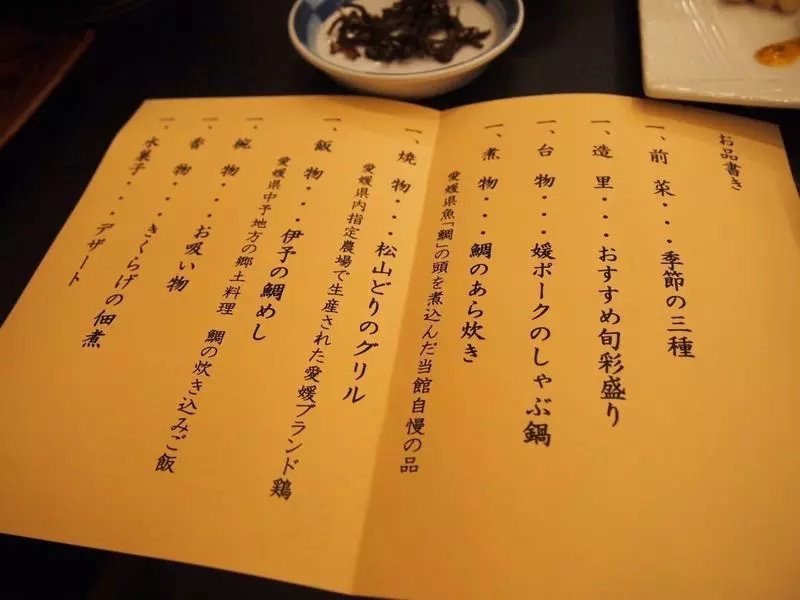 お品書き
一、前菜・・・季節の三種
一、造里・・・おすすめ旬彩盛り
一、台物・・・媛ポークのしゃぶ鍋
一、煮物・・・鯛のあら炊き
愛媛県魚「鯛」の頭を煮込んだ当館自慢の品
一、焼物・・・松山どりのグリル
愛媛県内指定農場で生産された愛媛ブランド鶏
一、飯物・・・伊予の鯛めし
愛媛県中予地方の郷土料理 鯛の炊き込みご飯
一、椀物・・・お吸い物
一、香物・・・きくらげの佃煮
一、水菓子・・・デザート